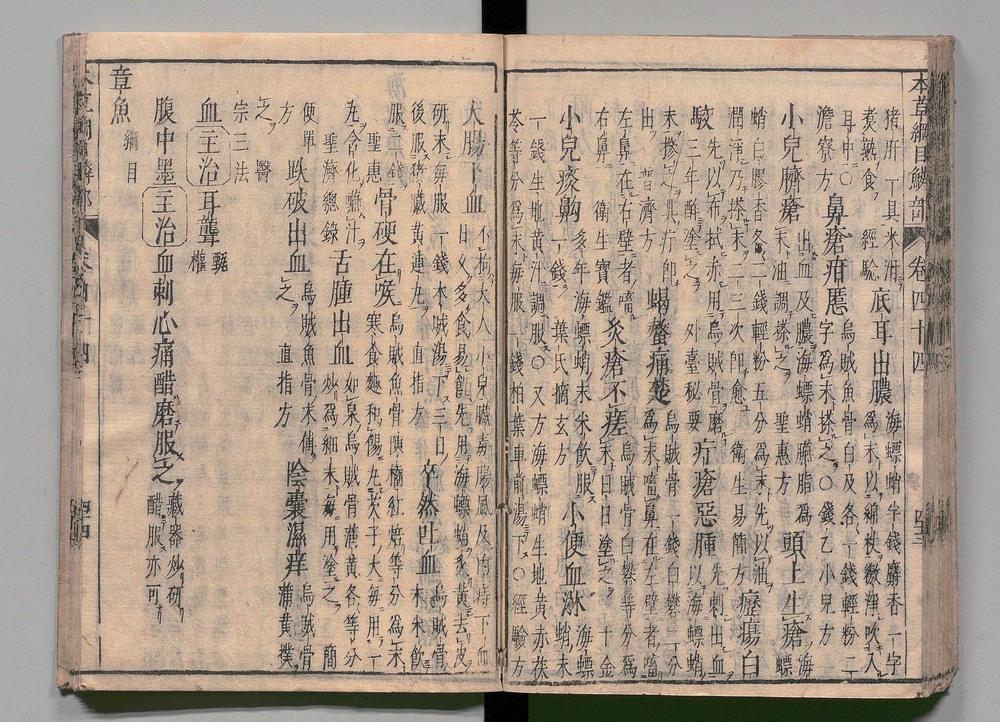 本草綱目鱗部 卷四十四
猪肝一具米泔
煑熟食 經驗 底耳出膿 海螵蛸半錢麝香一字爲末以綿杖微潤吹入
耳中○ 鼻瘡疳䘌 烏賊魚骨白及各一錢輕粉二字爲末搽之○錢乙小兒方
澹寮方
小兒臍瘡 出血及膿海螵蛸臙脂爲末油調搽之 聖惠方 頭上生瘡 海螵
蛸白膠香各二錢輕粉五分爲末先以油潤淨乃搽末二三次即愈 衛生易簡方 癧瘍白
駮 先以布拭赤用烏賊骨磨三年酢塗之 外臺秘要 疔瘡惡腫 先刺出血以海螵蛸
末摻之其疔即出 普濟方 蝎螫痛楚 烏賊骨一錢白礬二分爲末㗜鼻在左壁者㗜
左鼻在右壁者㗜右鼻 衛生寶鑑 灸瘡不瘥 烏賊骨白礬等分爲末日日塗之 千金
小兒痰齁 多年海螵蛸末米飲服一錢 葉氏摘玄方 小便血淋 海螵蛸末
一錢生地黄汁調服○又方海螵蛸生地黄赤茯
苓等分爲末每服一錢柏葉車前湯下○經驗方
大腸下血 不拘大人小兒臟毒腸風及内痔下血日久多食易飢先用海螵蛸炙黄去皮
研末每服一錢木賊湯下三日後服猪臟黄連丸 直指方 卒然吐血 烏賊骨末米飲
服二錢 聖惠 骨硬在喉 烏賊魚骨陳橘紅焙等分爲末寒食麪和餳丸芡子大每用一
丸含化嚥汁 聖濟總錄 舌腫出血 如泉烏賊骨蒲黄各等分炒爲細末每用塗之 簡
便單方 跌破出血 烏賊魚骨末傅之 直指方 陰囊濕痒 烏賊骨蒲黄撲
之 醫宗三法
血 主治 耳聾 甄權
腹中墨 主治 血刺心痛醋磨服之 藏器炒研醋服亦可
章魚 綱目